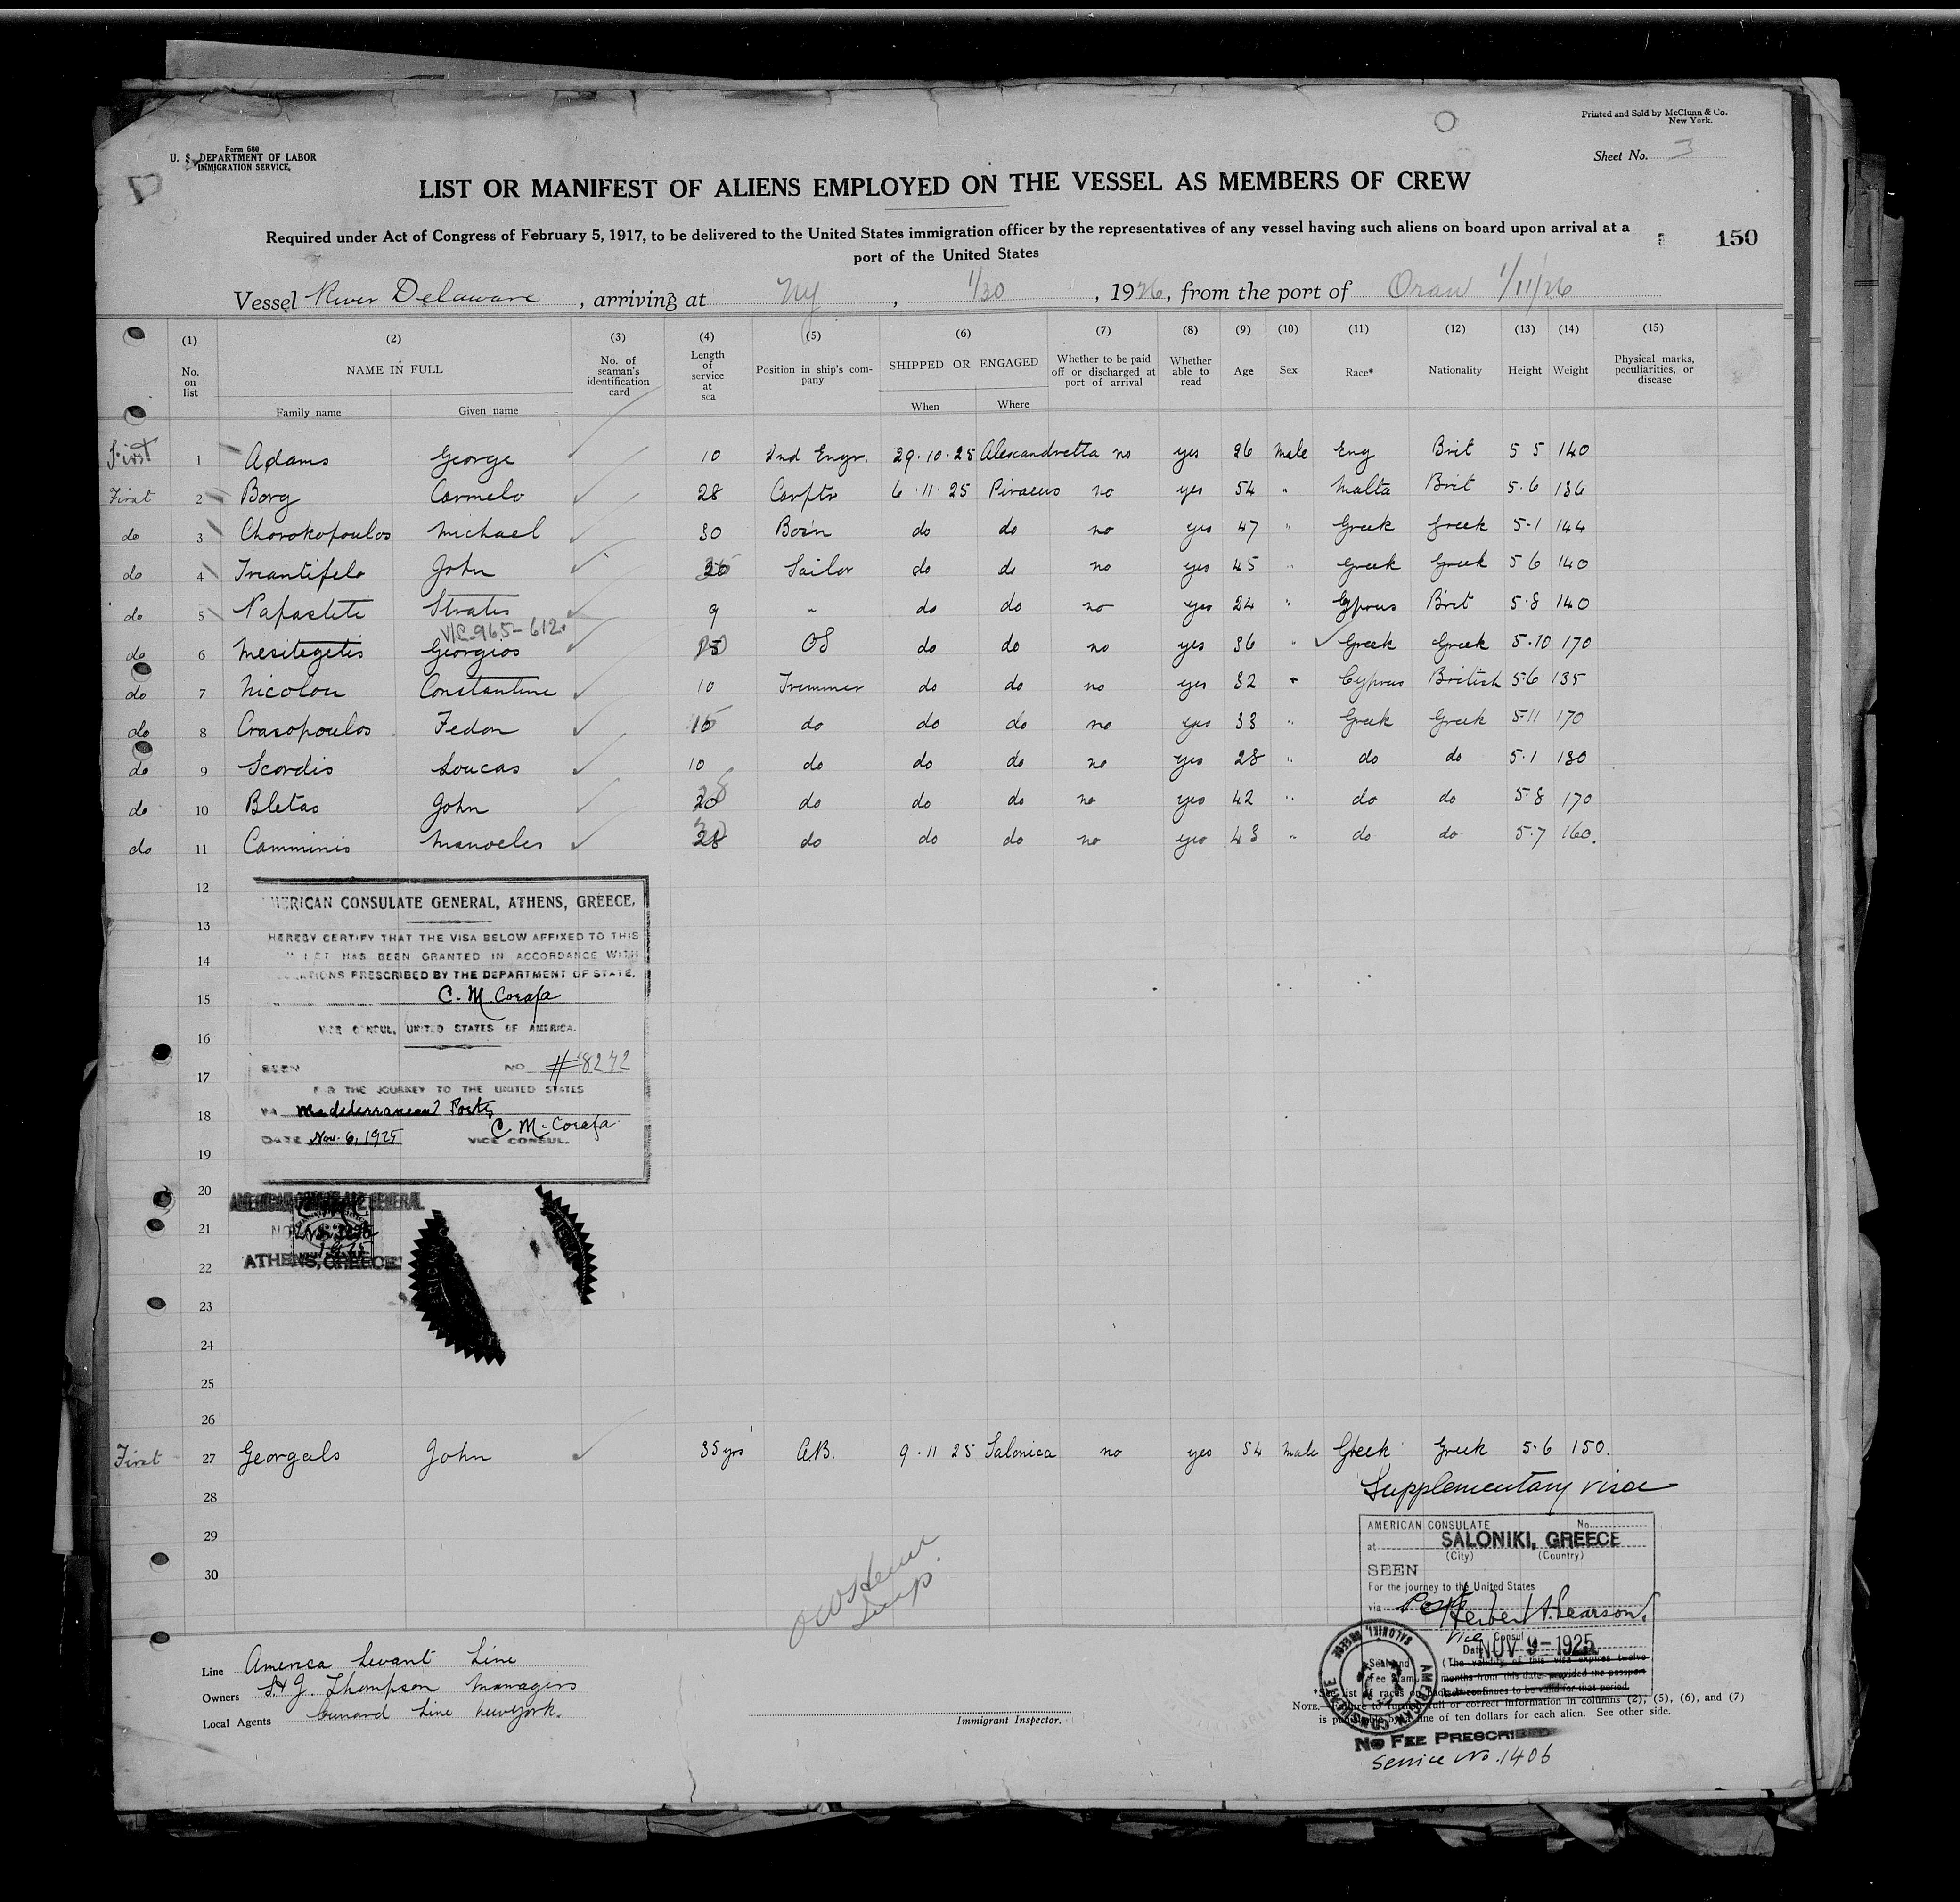 Form 680
U. S. DEPARTMENT OF LABOR
IMMIGRATION SERVICE
Printed and Sold by McClunn & Co.
New York.
Sheet No. 3
LIST OR MANIFEST OF ALIENS EMPLOYED ON THE VESSEL AS MEMBERS OF CREW
Required under Act of Congress of February 5, 1917, to be delivered to the United States immigration officer by the representatives of any vessel having such aliens on board upon arrival at a
port of the United States
150
Vessel River Delaware, arriving at NY, 1/30, 1926, from the port of Oran 1/11/26
(1) (2) (3) (4) (5) (6) (7) (8) (9) (10) (11) (12) (13) (14) (15)
No. on list NAME IN FULL No. of seaman's identification card Length of service at sea Position in ship's company SHIPPED OR ENGAGED Whether to be paid off or discharged at port of arrival Whether able to read Age Sex Race* Nationality Height Weight Physical marks, peculiarities, or disease
Family name Given name When Where
First 1 Adams George 10 2nd Engr. 29.10.25 Alexandretta no yes 26 male Eng Brit 5 5 140
First 2 Borg Carmelo 28 Carptr 6.11.25 Piraeus no yes 54 " Malta Brit 5.6 136
do 3 Chorokopoulos Michael 30 Bos'n do do no yes 47 " Greek Greek 5.1 144
do 4 John Sailor do do no yes 45 " Greek Greek 5 6 140
do 5 Stratis 9 " do do no yes 24 " Cyprus Brit 5.8 140
V/C-965-612.
do 6 Mesitegetis Georgios OS do do no yes 36 " Greek Greek 5.10 170
do 7 Nicolou Constantine 10 Trimmer do do no yes 32 " Cyprus British 5.6 135
do 8 Crasopoulos Fedon do do do no yes 33 " Greek Greek 5.11 170
do 9 Scordis Loucas 10 do do do no yes 28 " do do 5.1 130
do 10 Bletas John 20 do do do no yes 42 " do do 5.8 170
do 11 Camminis Manoeles 28 do do do no yes 43 " do do 5.7 160.
12
AMERICAN CONSULATE GENERAL, ATHENS, GREECE.
13
HEREBY CERTIFY THAT THE VISA BELOW AFFIXED TO THIS
14
LIST HAS BEEN GRANTED IN ACCORDANCE WITH
PRESCRIBED BY THE DEPARTMENT OF STATE.
15
C. M. Corafa
16
VICE CONSUL, UNITED STATES OF AMERICA.
SEEN NO #8272
17
FOR THE JOURNEY TO THE UNITED STATES
18
VIA Mediterranean Ports
C. M. Corafa
DATE Nov. 6, 1925 VICE CONSUL.
19
20
AMERICAN CONSULATE GENERAL
21
22
ATHENS, GREECE
23
24
25
26
First 27 Georgals John 35 yrs A.B. 9.11 25 Salonica no yes 54 male Greek Greek 5.6 150.
28
Supplementary visa
29
30
AMERICAN CONSULATE No.
at SALONIKI, GREECE
(City) (Country)
SEEN
For the journey to the United States
via Ports
Herbert A. Pearson.
Vice Consul
Date NOV 9-1925
(The validity of this visa expires twelve
months from this date provided the passport
continues to be valid for that period.
Line America Levant Line
Owners H J. Thompson Managers
Local Agents Cunard Line New York.
Immigrant Inspector.
*See list of races on back
NOTE.—Failure to furnish full or correct information in columns (2), (5), (6), and (7)
is punishable by a fine of ten dollars for each alien. See other side.
SALONIKI, GREECE
AMERICAN CONSULATE
NO FEE PRESCRIBED
Service No. 1406